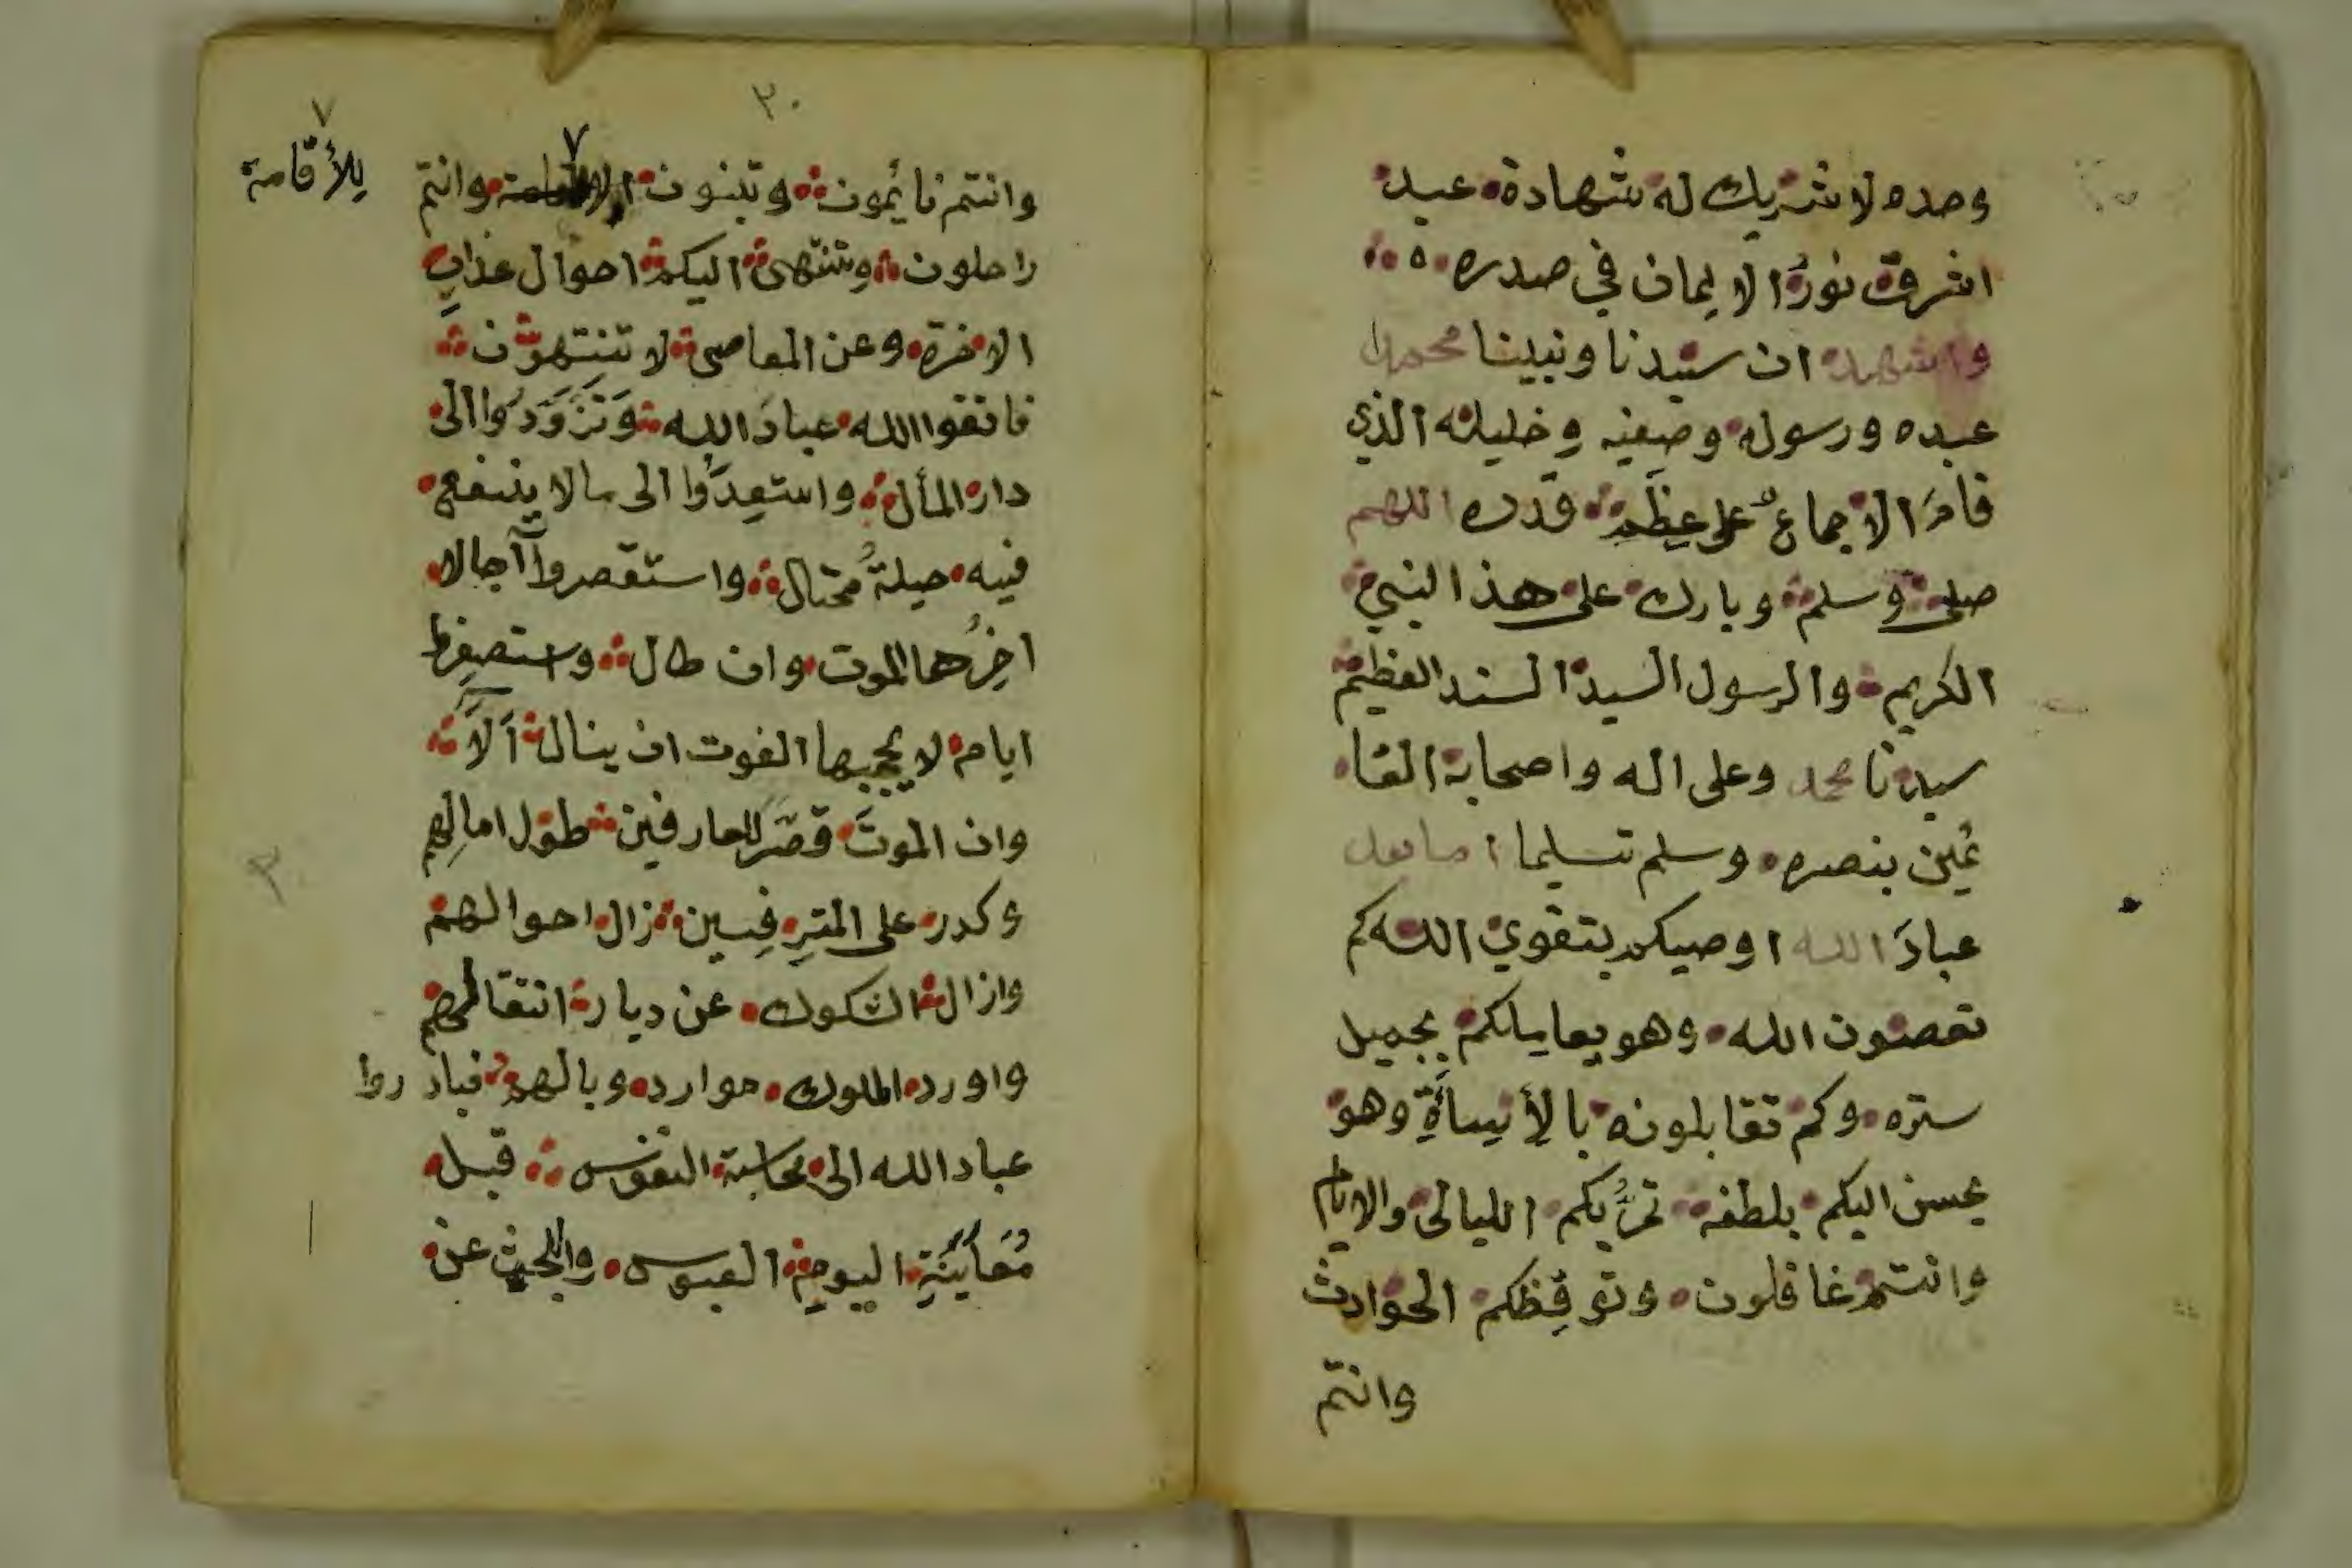 وحده لا شريك له شهادة عبد
اشرقت نورُ الايمان في صدره
واشهد ان سيدنا ونبينا محمدا
عبده ورسوله وصفيه وخليله الذي
قامَ الاجماعُ على عِظَمِ قدره اللهم
صلى وسلم وبارك على هذا النبي
الكريم والرسول السيد السند العظيم
سيدنا محمد وعلى اله واصحابه القا
ئمين بنصره وسلم تسليما اما بعد
عبادَ الله اوصيكم بتقوي الله كم
تعصون الله وهو يعاملكم بجميل
ستره وكم تقابلونه بالأيسأةِ وهو
يحسن اليكم بلطفه تمرُّ بكم الليالى والايام
وانتم غافلون وتوقِظكم الحوادث
وانتم
٣٠
وانتم نائمون وتبنون وانتم
للأقامة
راحلون وتنتهى اليكم احوال عذابِ
الاخرة وعن المعاصى لا تنتهون
فاتقوا الله عبادَ الله وَتَزَوَدُوا الى
دار المأل واستعِدَوا الى ما لا ينفع
فيه حيلةُ محتال واستقصروا آجالا
اخِرُها الموت وان طال واستصغِرو
ايام لا يحجبها الفوت ان ينال اَلاَ
وان الموتَ قصَّرَ للعارفين طول امالِهم
وكدر على المترفِين زال احوالهم
وازال الشكوك عن ديار انتقالهم
واورد الملوك موارد وبالهم فبادروا
عباد الله الى محاسبة النفوس قبل
مُعَايَنَةِ اليومِ العبوس والبحث عن